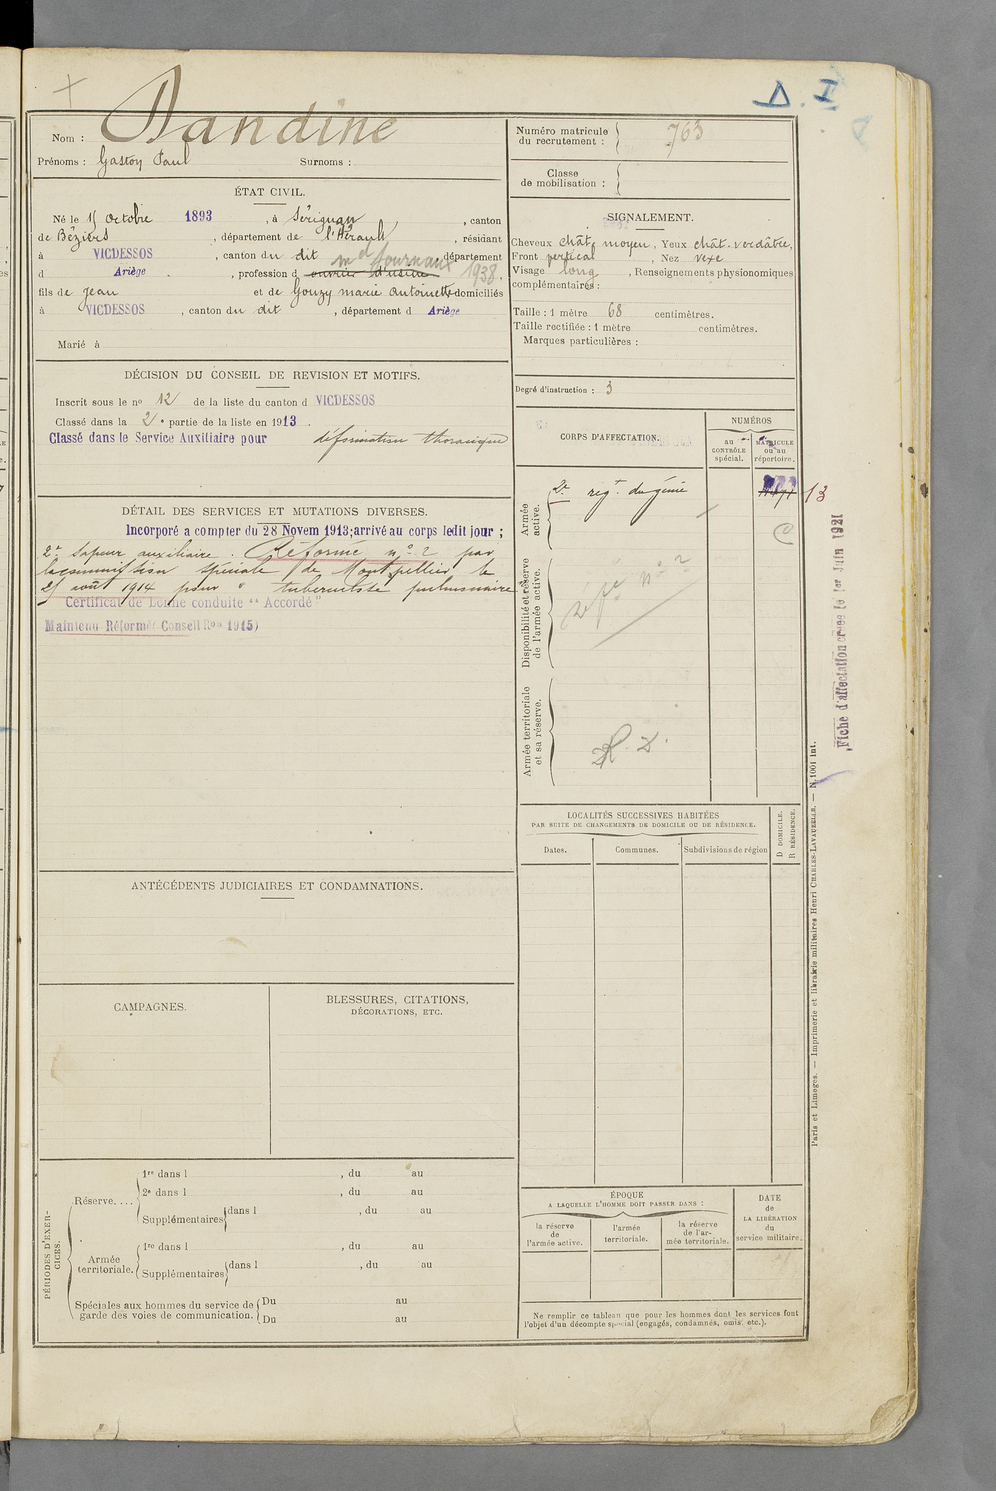 D. I
Nom : Dandine
Prénoms : Gaston Paul Surnoms :
Numéro matricule du recrutement : 763
Classe de mobilisation :
ÉTAT CIVIL.
Né le 15 Octobre 1893, à Sérignan, canton
de Béziers, département de l'Hérault, résidant
à VICDESSOS, canton du dit département
d Ariège, profession d ouvrier d'usine md journaux 1938.
fils de Jean et de Gouzy marie Antoinette domiciliés
à VICDESSOS, canton du dit, département d Ariège
Marié à
SIGNALEMENT.
Cheveux chât. moyen, Yeux chât. verdâtre,
Front vertical, Nez vexe
Visage long, Renseignements physionomiques
complémentaires :
Taille : 1 mètre 68 centimètres.
Taille rectifiée : 1 mètre centimètres.
Marques particulières :
Degré d'instruction : 3
DÉCISION DU CONSEIL DE REVISION ET MOTIFS.
Inscrit sous le no 12 de la liste du canton d VICDESSOS
Classé dans la 2e partie de la liste en 1913.
Classé dans le Service Auxiliaire pour déformation thoracique
DÉTAIL DES SERVICES ET MUTATIONS DIVERSES.
Incorporé a compter du 28 Novem 1913; arrivé au corps ledit jour ;
2e Sapeur auxiliaire. Réformé no 2 par
la commission spéciale de Montpellier le
25 août 1914 pour tuberculose pulmonaire
Certificat de bonne conduite "Accordé"
Maintenu Réformé Conseil Ron 1915)
CORPS D'AFFECTATION.
NUMÉROS
au CONTRÔLE spécial.
MATRICULE ou au répertoire.
Armée active.
2e régt. du génie
13
Disponibilité et réserve de l'armée active.
réfé no 2
Armée territoriale et sa réserve.
Fiche d'affectation créée le 1er Juin 1921
LOCALITÉS SUCCESSIVES HABITÉES
PAR SUITE DE CHANGEMENTS DE DOMICILE OU DE RÉSIDENCE.
Dates. Communes. Subdivisions de région
D DOMICILE.
R RÉSIDENCE.
ANTÉCÉDENTS JUDICIAIRES ET CONDAMNATIONS.
CAMPAGNES.
BLESSURES, CITATIONS,
DÉCORATIONS, ETC.
PÉRIODES D'EXERCICES.
Réserve....
1re dans l , du au
2e dans l , du au
Supplémentaires dans l , du au
Armée territoriale.
1re dans l , du au
Supplémentaires dans l , du au
Spéciales aux hommes du service de garde des voies de communication.
Du au
Du au
ÉPOQUE
A LAQUELLE L'HOMME DOIT PASSER DANS :
la réserve de l'armée active.
l'armée territoriale.
la réserve de l'armée territoriale.
DATE de LA LIBÉRATION du service militaire.
Ne remplir ce tableau que pour les hommes dont les services font
l'objet d'un décompte spécial (engagés, condamnés, omis, etc.).
Paris et Limoges. — Imprimerie et librairie militaires Henri CHARLES-LAVAUZELLE. — N. 1001 int.